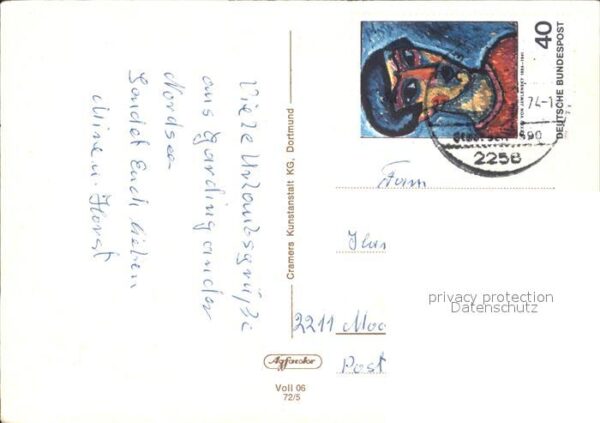 Viele Urlaubsgrüße
aus Garding an der
Nordsee
Sendet Euch lieben
Mine u. Horst
Cramers Kunstanstalt KG, Dortmund
Agfacolor
Voll 06
72/5
40
DEUTSCHE BUNDESPOST
74-1
2256
Fam
2211 Moo
Post
privacy protection
Datenschutz